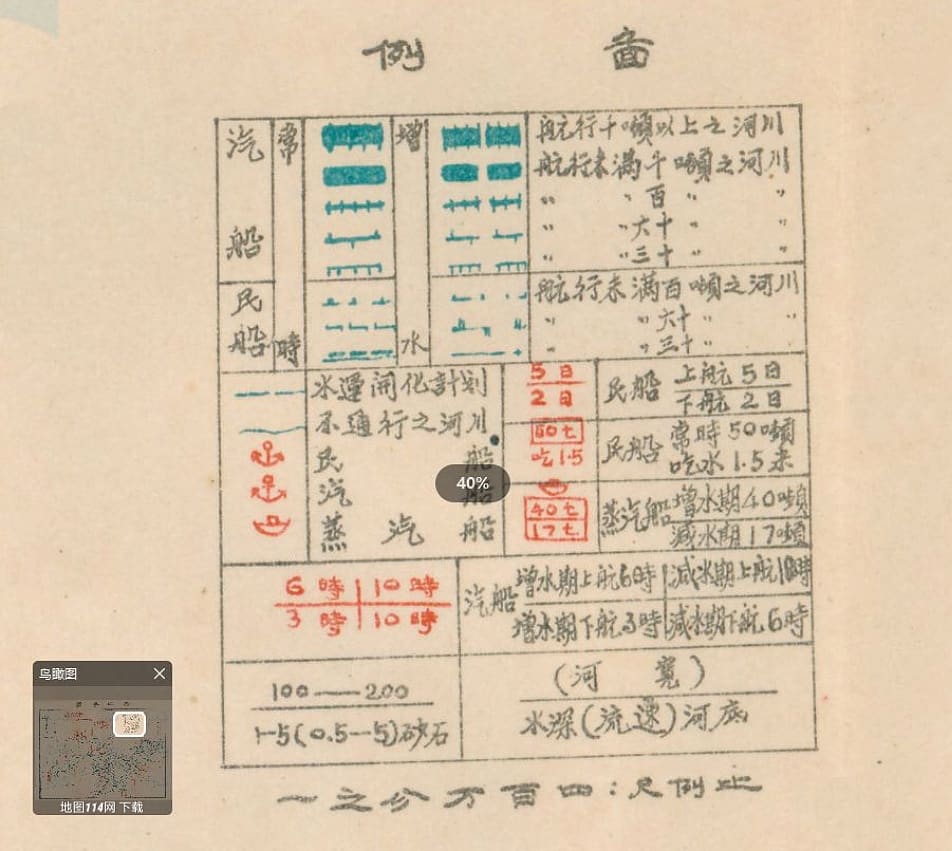 圖例
汽船
常時
增水
航行千噸以上之河川
航行未滿千噸之河川
〃 〃百〃 〃
〃 〃六十〃 〃
〃 〃三十〃 〃
民船
航行未滿百噸之河川
〃 〃六十〃 〃
〃 〃三十〃
水運開化計劃
不通行之河川
民船
汽船
蒸汽船
5日
2日
民船 上航5日
下航2日
50七
吃1.5
民船 常時50噸
吃水1.5米
40七
17七
蒸汽船 增水期40噸
減水期17噸
6時 10時
3時 10時
汽船 增水期上航6時 減水期上航10時
增水期下航3時 減水期下航6時
100——200
1-5(0.5—5)砂石
(河寬)
水深(流速)河底
比例尺:四百万分之一
40%
鸟瞰图
地图114网 下载